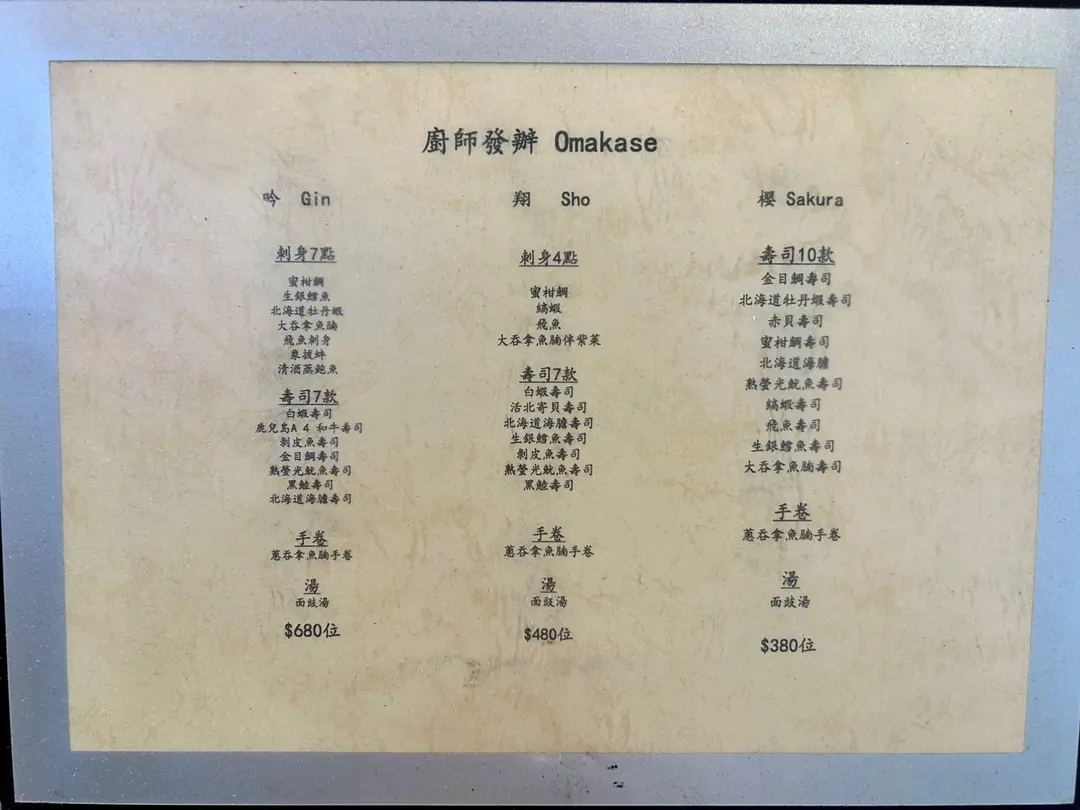 廚師發辦 Omakase
吟 Gin
刺身7點
蜜柑鯛
生銀鱈魚
北海道牡丹蝦
大吞拿魚腩
飛魚刺身
象拔蚌
清酒蒸鮑魚
壽司7款
白蝦壽司
鹿兒島A 4 和牛壽司
剝皮魚壽司
金目鯛壽司
熟螢光魷魚壽司
黑鯥壽司
北海道海膽壽司
手卷
蔥吞拿魚腩手卷
湯
面豉湯
$680位
翔 Sho
刺身4點
蜜柑鯛
縞蝦
飛魚
大吞拿魚腩伴紫菜
壽司7款
白蝦壽司
活北寄貝壽司
北海道海膽壽司
生銀鱈魚壽司
剝皮魚壽司
熟螢光魷魚壽司
黑鯥壽司
手卷
蔥吞拿魚腩手卷
湯
面豉湯
$480位
櫻 Sakura
壽司10款
金目鯛壽司
北海道牡丹蝦壽司
赤貝壽司
蜜柑鯛壽司
北海道海膽
熟螢光魷魚壽司
縞蝦壽司
飛魚壽司
生銀鱈魚壽司
大吞拿魚腩壽司
手卷
蔥吞拿魚腩手卷
湯
面豉湯
$380位